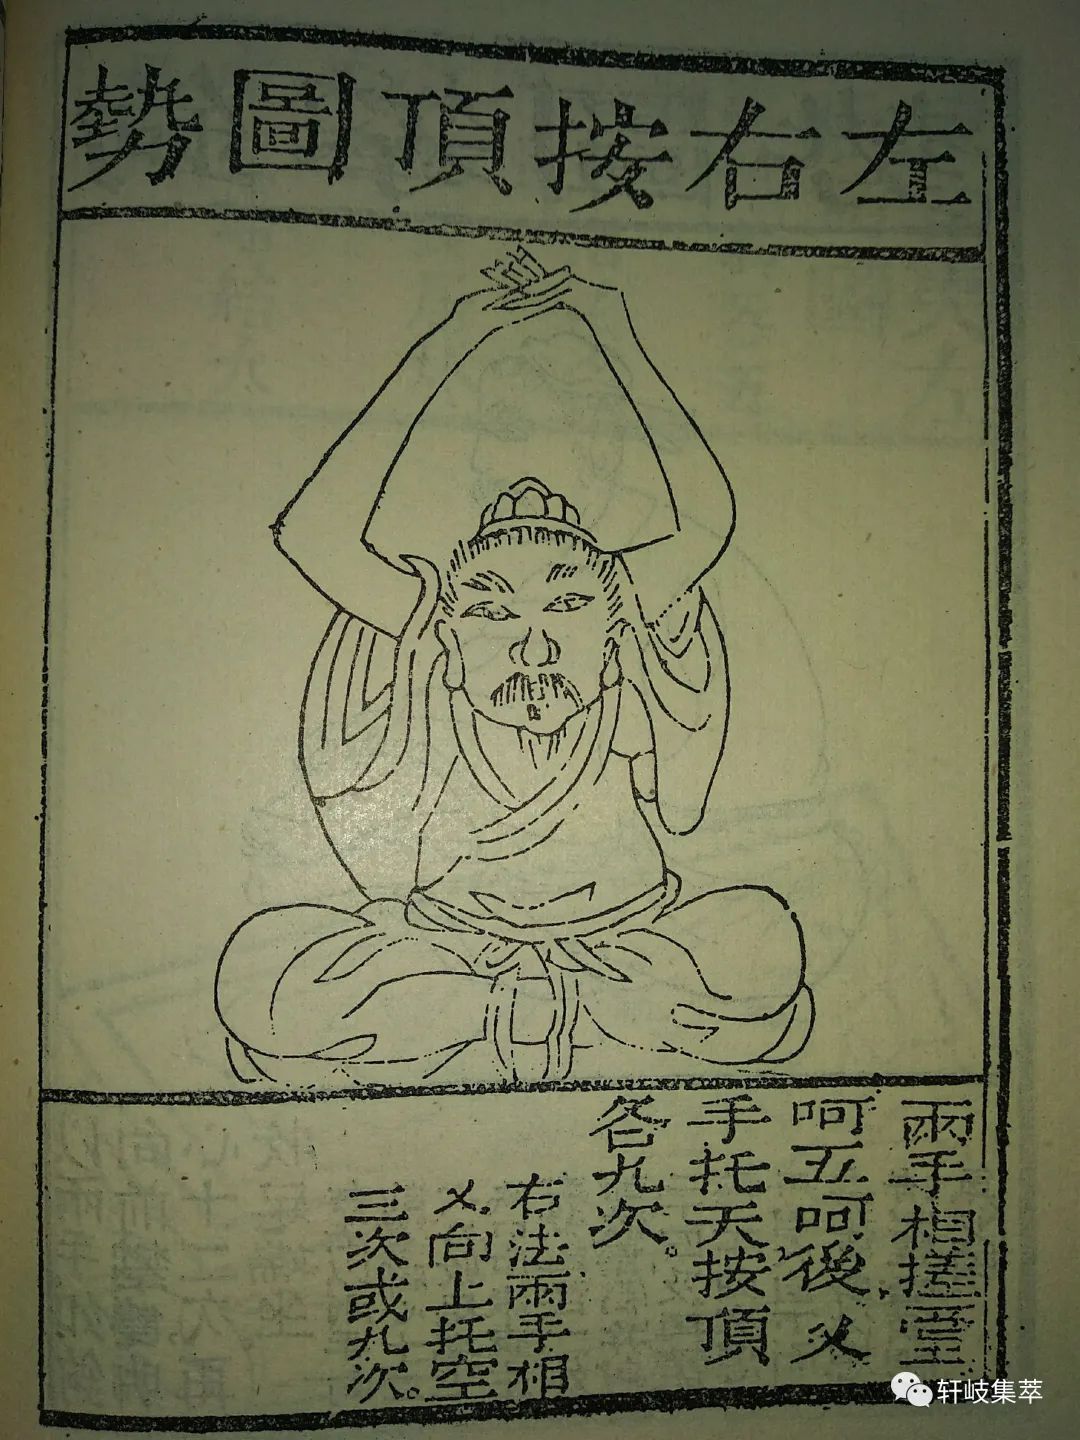 左右按頂圖勢
兩手相搓當
呵五呵後叉
手托天按頂
各九次。
右法兩手相
叉向上托空
三次或九次。
轩岐集萃